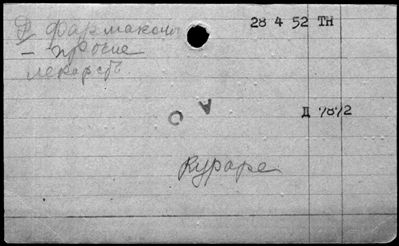 Фармакол
28 4 52 ТН
— прочие
лекарств
О А
Д 7872
Кураре